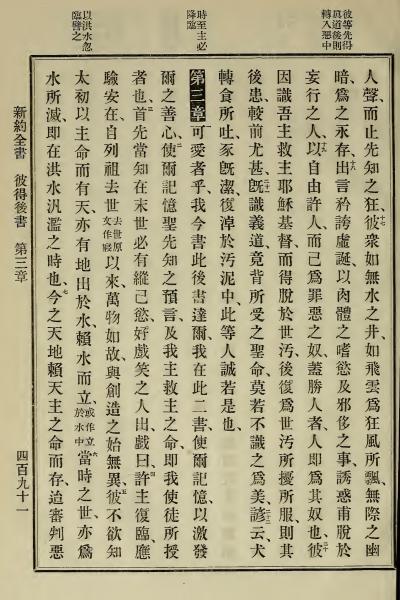 彼等先得
眞道後則
轉入惡中
時至主必
降臨
以洪水忽
臨譬之
人聲、而止先知之狂、十七彼衆如無水之井、如飛雲爲狂風所飄、無際之幽
暗、爲之永存、十八出言矜誇虛誕、以肉體之嗜慾、及邪侈之事、誘惑甫脫於
妄行之人、十九以自由許人、而己爲罪惡之奴、蓋勝人者、人卽爲其奴也、二十彼
因識吾主救主耶穌基督、而得脫於世汚、後復爲世汚所擾所服、則其
後患、較前尤甚、二一旣識義道、竟背所受之聖命、莫若不識之爲美、二二諺云、犬
轉食所吐、豕旣潔、復淖於汚泥中、此等人誠若是也、
第三章 可愛者乎、我今書此後書達爾、我在此二書、使爾記憶、以激發
爾之善心、二使爾記憶聖先知之預言、及我主救主之命、卽我使徒所授
者也、三首先當知在末世必有縱己慾好戲笑之人出戲曰、四許主復臨、應
驗安在、自列祖去世去世原文作寢以來、萬物如故、與創造之始無異、五彼不欲知
太初以主命而有天、亦有地出於水、賴水而立、或作立於水中六當時之世、亦爲
水所滅、卽在洪水汎濫之時也、七今之天地賴天主之命而存、迨審判惡
新約全書 彼得後書 第三章 四百九十一